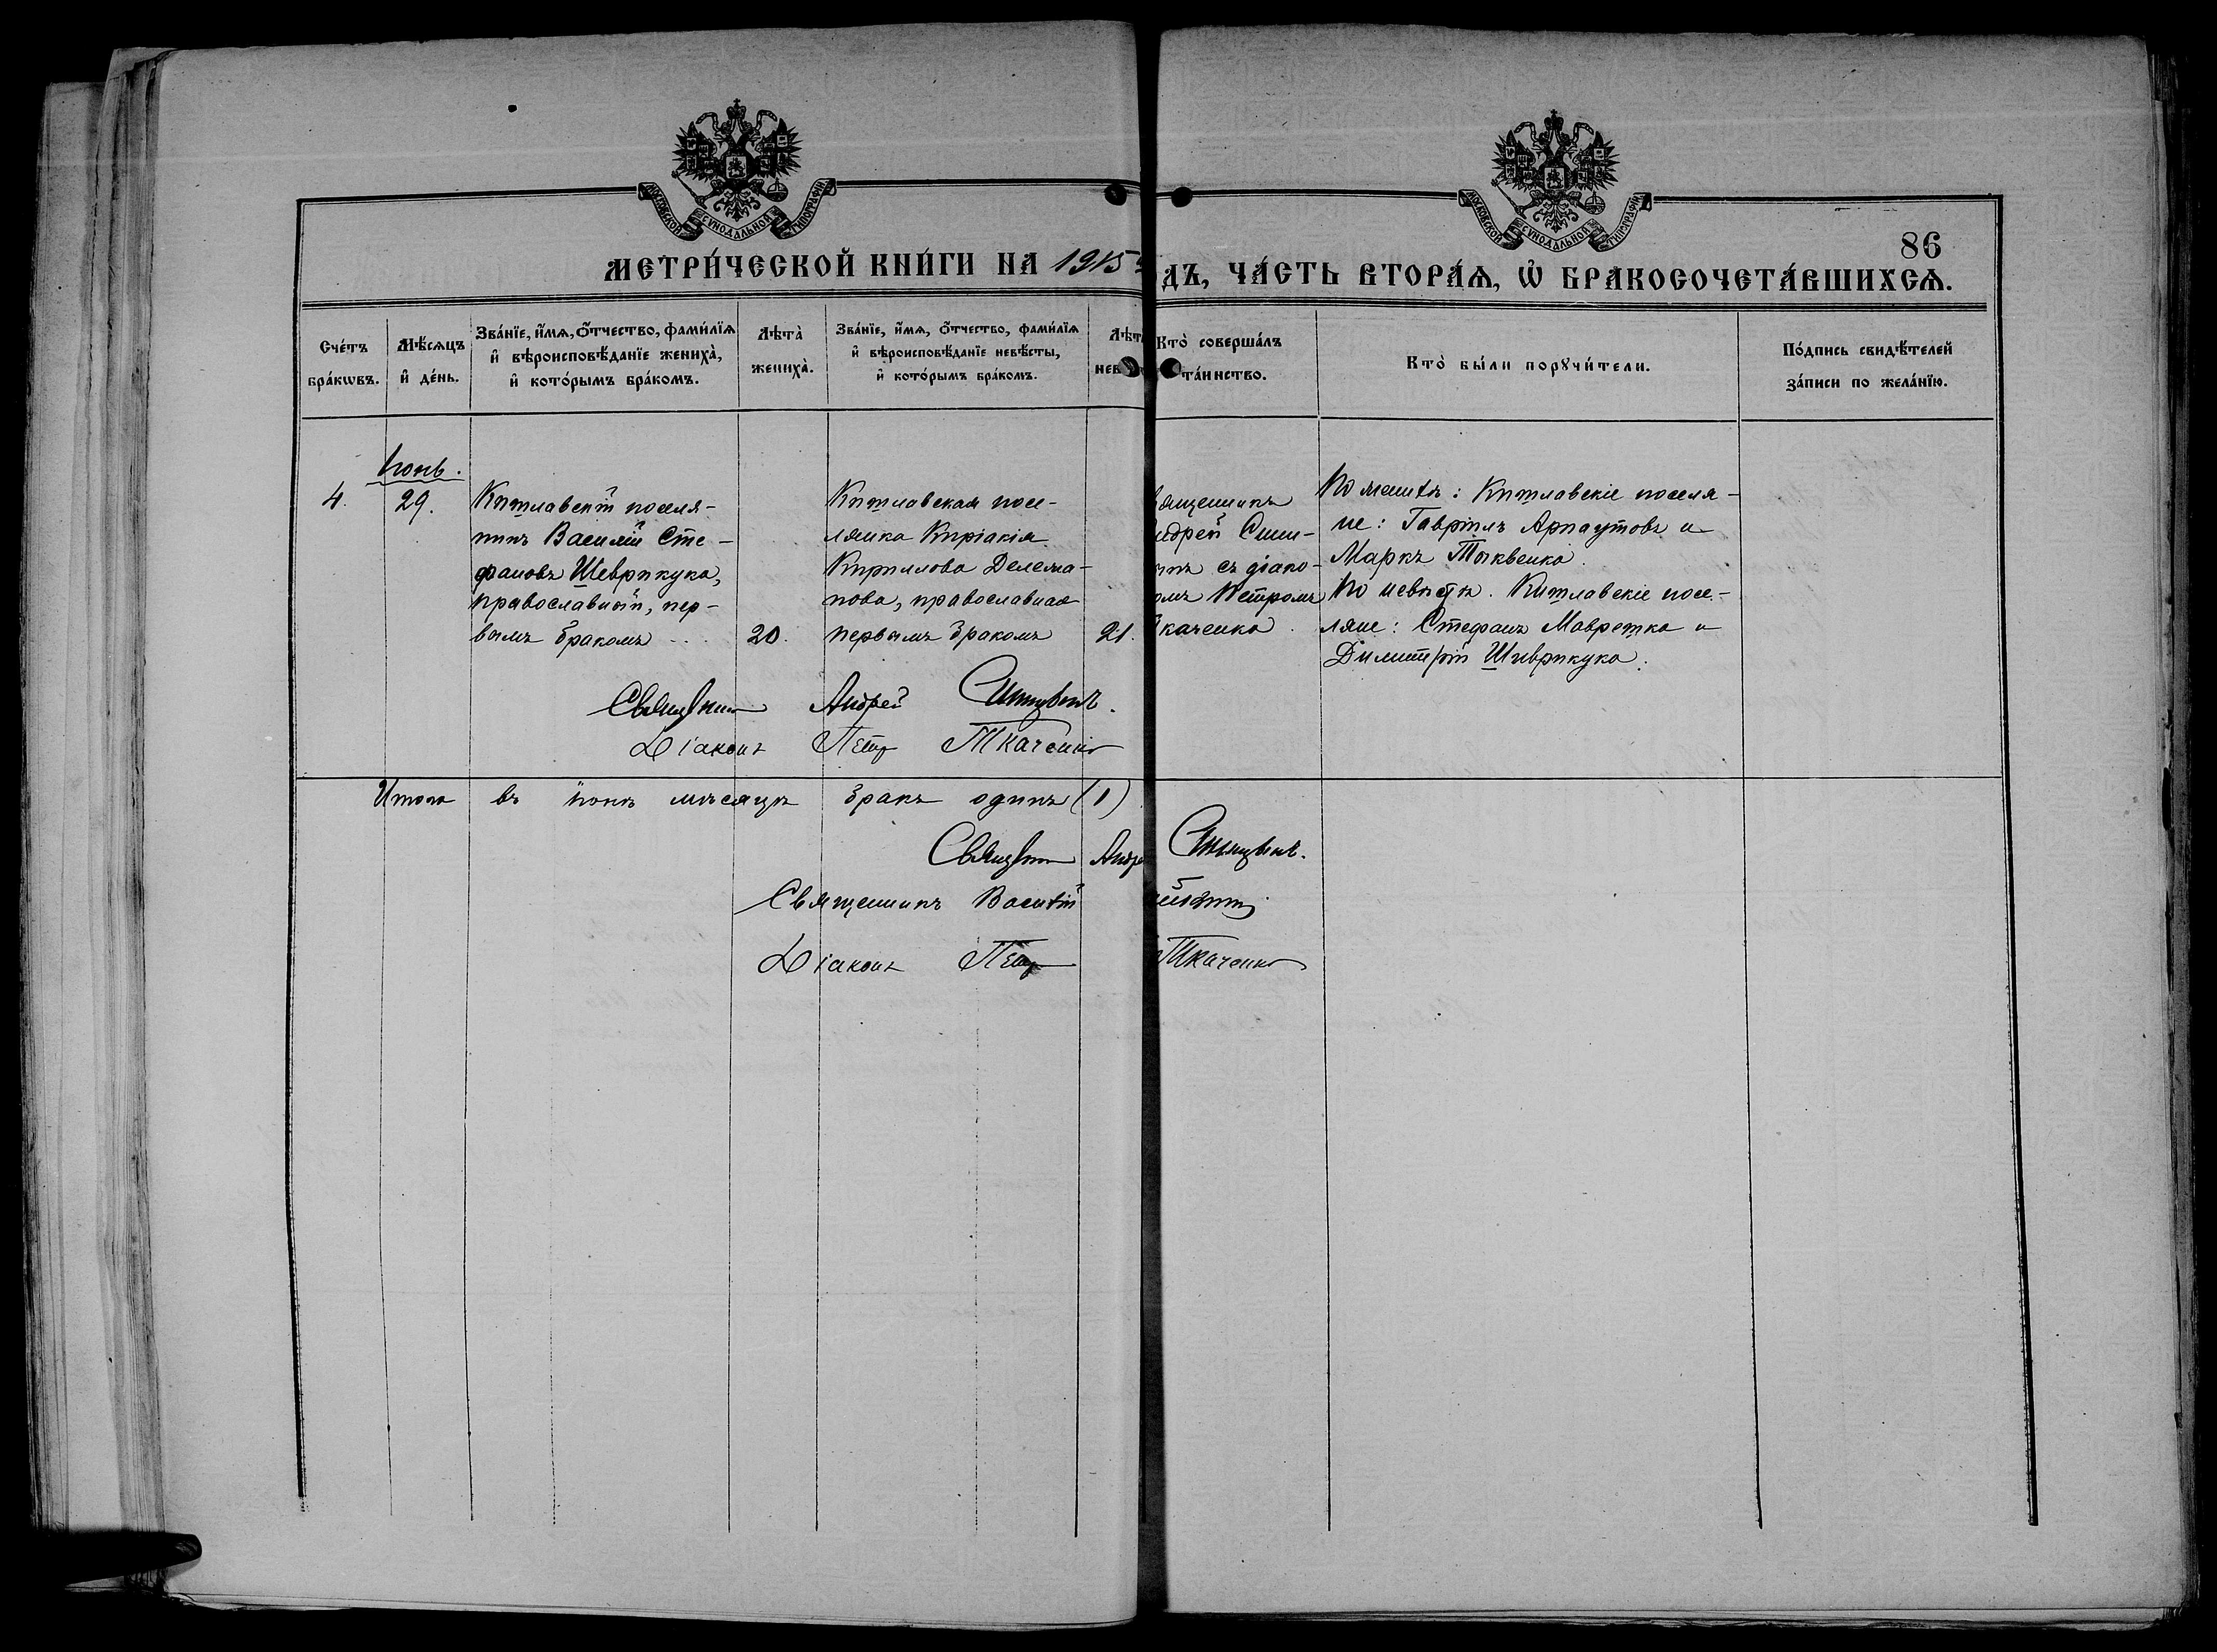 МОСКОВСКОЙ СѴНОДАЛЬНОЙ ТИПОГРАФІИ
МОСКОВСКОЙ СѴНОДАЛЬНОЙ ТИПОГРАФІИ
86
МЕТРИ́ЧЕСКОЙ КНИ́ГИ НА 1915
ДЪ, ЧА́СТЬ ВТОРА́Ѧ, Ѽ БРАКОСОЧЕТА́ВШИХСѦ.
Сче́тъ
бра́кѡвъ.
Мѣ́сѧцъ
и҆ де́нь.
Зва́нїе, и҆́мѧ, ѻ҆́тчество, фами́лїѧ
и҆ вѣроисповѣ́данїе жениха̀,
и҆ кото́рымъ бра́комъ.
Лѣта̀
жениха̀.
Зва́нїе, и҆́мѧ, ѻ҆́тчество, фами́лїѧ
и҆ вѣроисповѣ́данїе невѣ́сты,
и҆ кото́рымъ бра́комъ.
Лѣт
нев
Кто̀ соверша́лъ
та́инство.
Кто̀ бы́ли порꙋчи́тели.
По́дпись свидѣ́телей
за́писи по жела́нїю.
Іюнь.
4. 29.
Китлавскій поселя-
нинъ Василій Сте-
фановъ Шеврикука,
православный, пер-
вымъ бракомъ 20.
Китлавская посе-
лянка Киріакія
Кириллова Делема-
нова, православная
первымъ бракомъ 21.
ященникъ
ндрей Сини-
инъ съ діако-
омъ Петромъ
каченко.
По женихѣ: Китлавскіе поселя-
не: Гавріилъ Арнаутовъ и
Маркъ Тыквенко.
По невѣстѣ. Китлавскіе посе-
ляне: Стефанъ Мавретка и
Димитрій Шиврикука.
Священникъ Андрей Синицынъ.
Діаконъ Петр Ткаченко
Итого въ іюнѣ мѣсяцѣ бракъ одинъ (1)
Священник Андре Синицынъ.
Священникъ Василій
Діаконъ Петр Ткаченко